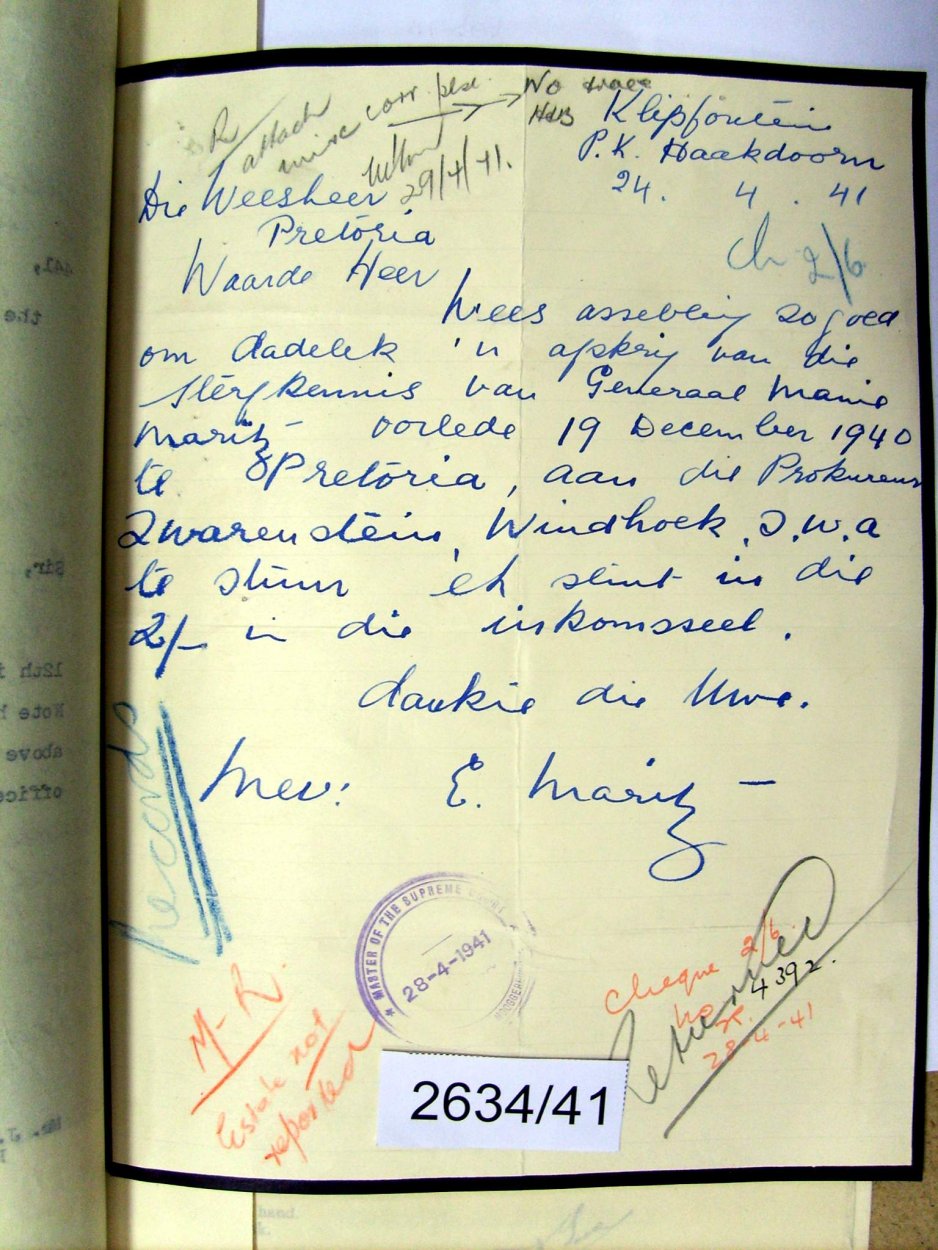 R
attach
misc corr. plse
29/4/41.
No trace
Klipfontein
P.K. Haakdoorn
24. 4. 41
Die Weesheer
Pretoria
Waarde Heer
ch 2/6
Wees assebliev so goed
om dadelek 'n afskrif van die
sterfkennis van Generaal Manie
Maritz oorlede 19 December 1940
te Pretoria, aan die Prokureur
Zwarenstein, Windhoek, S.W.A
te stuur ek sluit in die
2/- in die inkomsseel.
dankie die Uwe.
Mev: E. Maritz
Records
MASTER OF THE SUPREME COURT
28-4-1941
M-R.
Estate not
reported
Cheque 2/6.
4392.
28-4-41
Returned
2634/41
441,
the
Sir,
12th
Note
above
office
Mr. J.
hand.